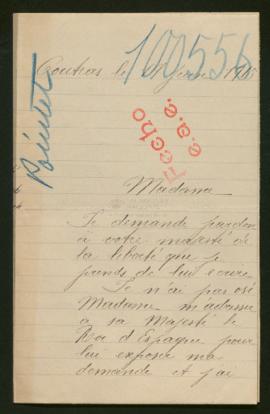 100556
Coutras le janv 1915
Pointet
Fecho
e.a.e.
Madame
Je demande pardon
à votre majesté de
la liberté que je
prends de lui écrire
Je n'ai pas osé
Madame m'adresser
à sa Majesté le
Roi d'Espagne pour
lui exposer ma
demande et j'ai